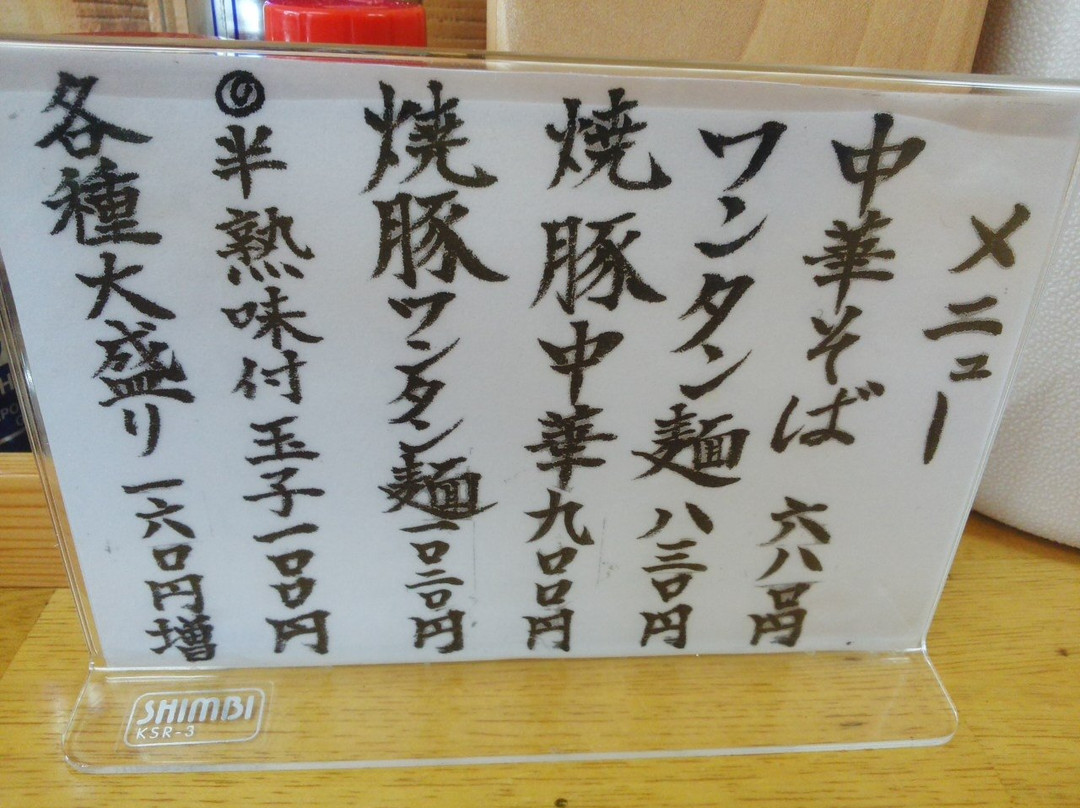 メニュー
中華そば 六八〇円
ワンタン麺 八三〇円
焼豚中華 九〇〇円
焼豚ワンタン麺 一〇二〇円
の 半熟味付玉子 一〇〇円
各種大盛り 一六〇円増
SHIMBI
KSR-3